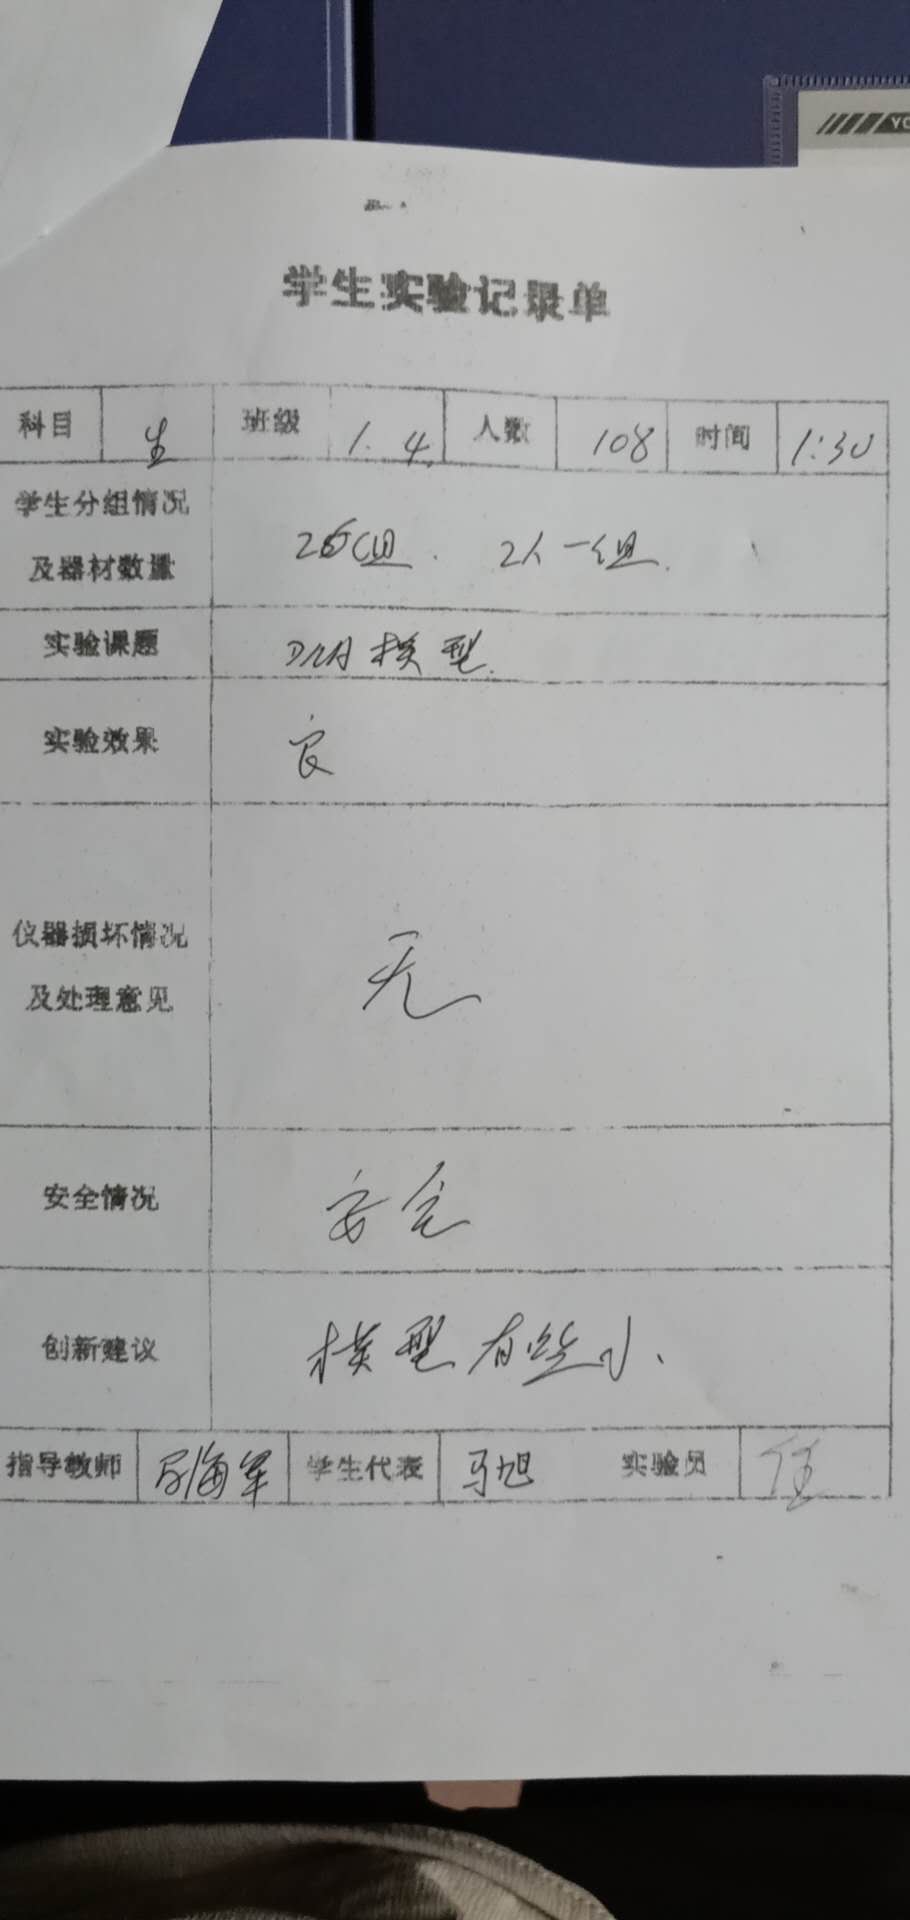 YO
学生实验记录单
科目 生 班级 1. 4. 人数 108 时间 1:30
学生分组情况
及器材数量
组. 2人一组.
实验课题 DNA模型.
实验效果 良
仪器损坏情况
及处理意见
无
安全情况 安全
创新建议 模型有些小、
指导教师 海军 学生代表 马旭 实验员 任